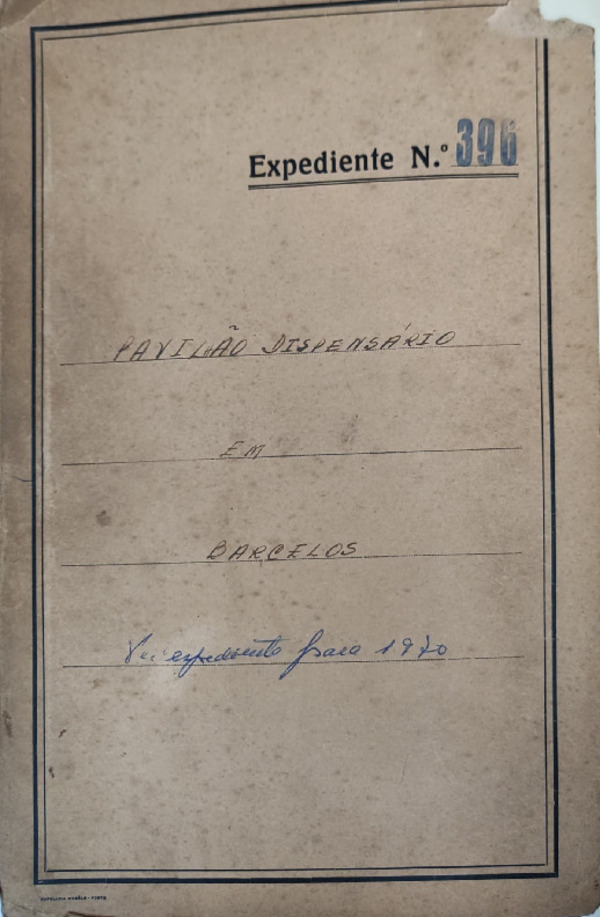 Expediente N.º 396
PAVILHÃO DISPENSÁRIO
EM
BARCELOS
expediente para 1970